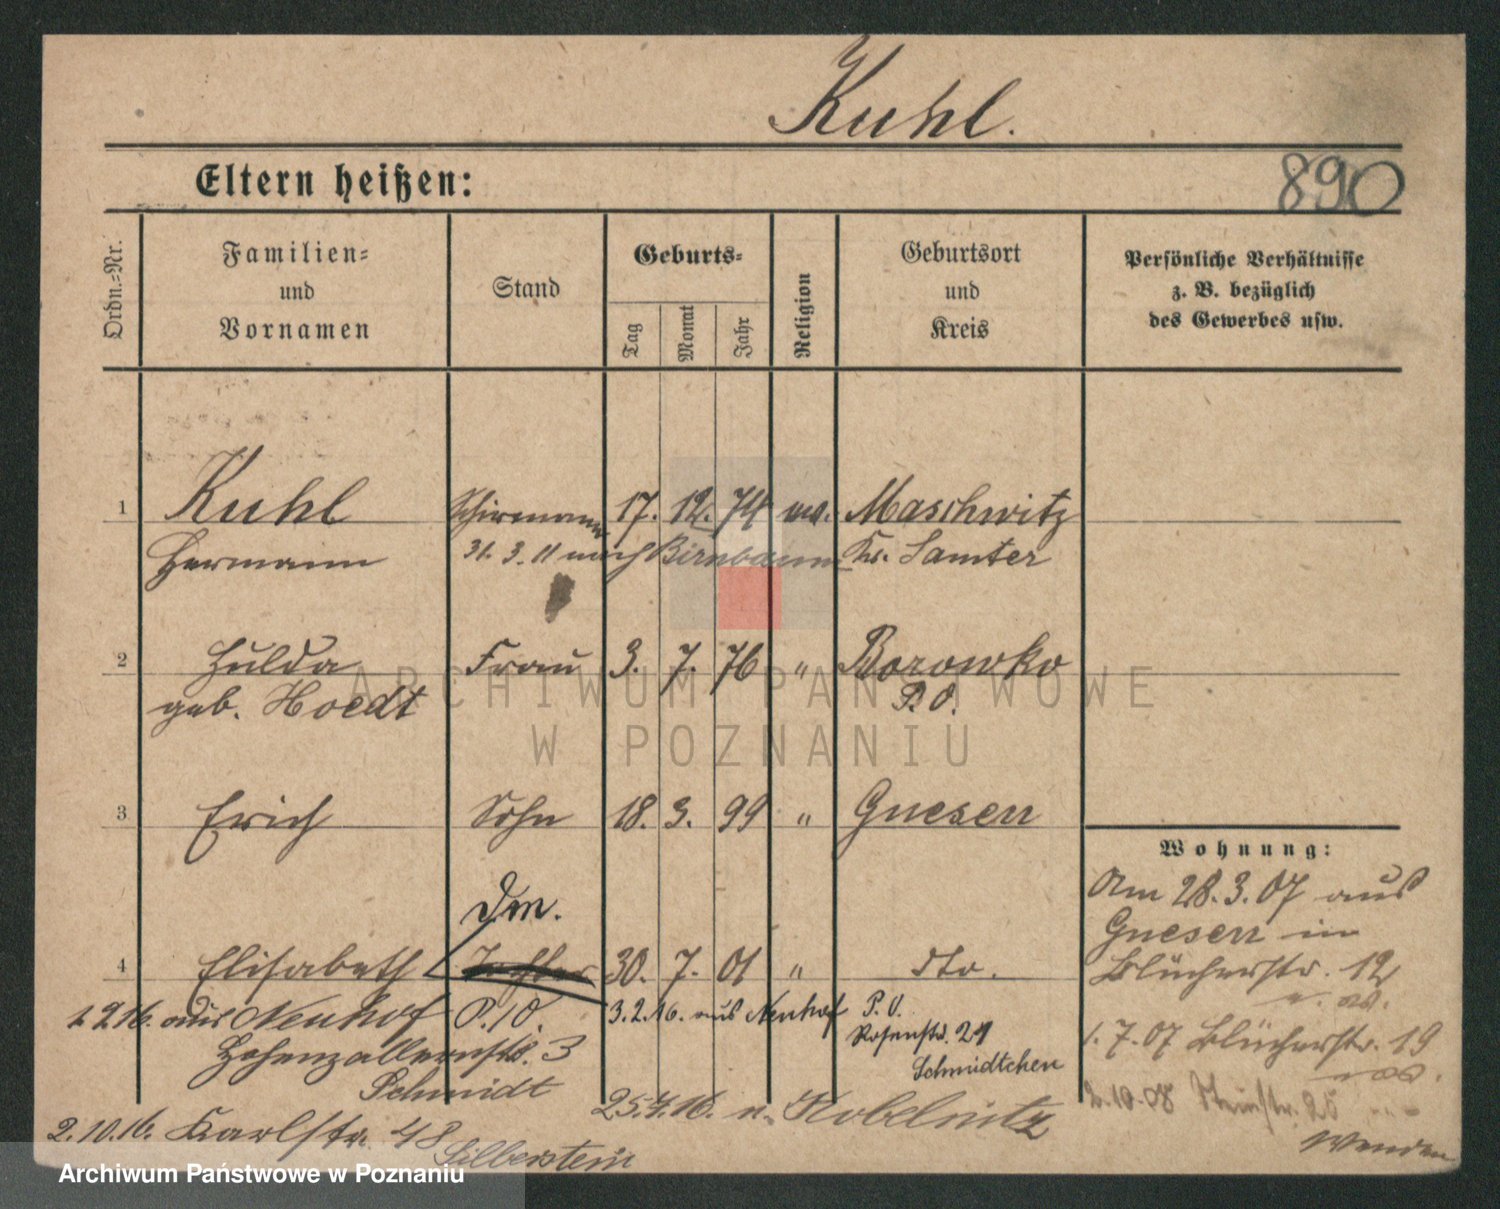 Kuhl.
890
Eltern heißen:
Ordn.-Nr.
Familien-
und
Vornamen
Stand
Geburts-
Tag
Monat
Jahr
Religion
Geburtsort
und
Kreis
Persönliche Verhältnisse
z. B. bezüglich
des Gewerbes usw.
1 Kuhl Schirrmann 17. 12. 74 ev. Maschwitz
Hermann 31. 3. 11 nach Birnbaum Kr. Samter
2 Hulda Frau 3. 7. 76 " Borowko
geb. Hoedt P. O.
3 Erich Sohn 18. 3. 99 " Gnesen
Dm.
4 Elisabeth Tochter 30. 7. 01 " dto.
1.2.16. aus Neuhof P. O. 3.2.16. aus Neuhof P. O.
Hohenzollernstr. 3 Rosenstr. 21
Schmidt Schmidtchen
25.4.16. n. Kobelnitz
2.10.16. Karlstr. 48
Silberstein
Wohnung:
Am 28.3.07 aus
Gnesen in
Blücherstr. 12
1.7.07 Blücherstr. 19
2.10.08
Wenden
ARCHIWUM PAŃSTWOWE
W POZNANIU
Archiwum Państwowe w Poznaniu